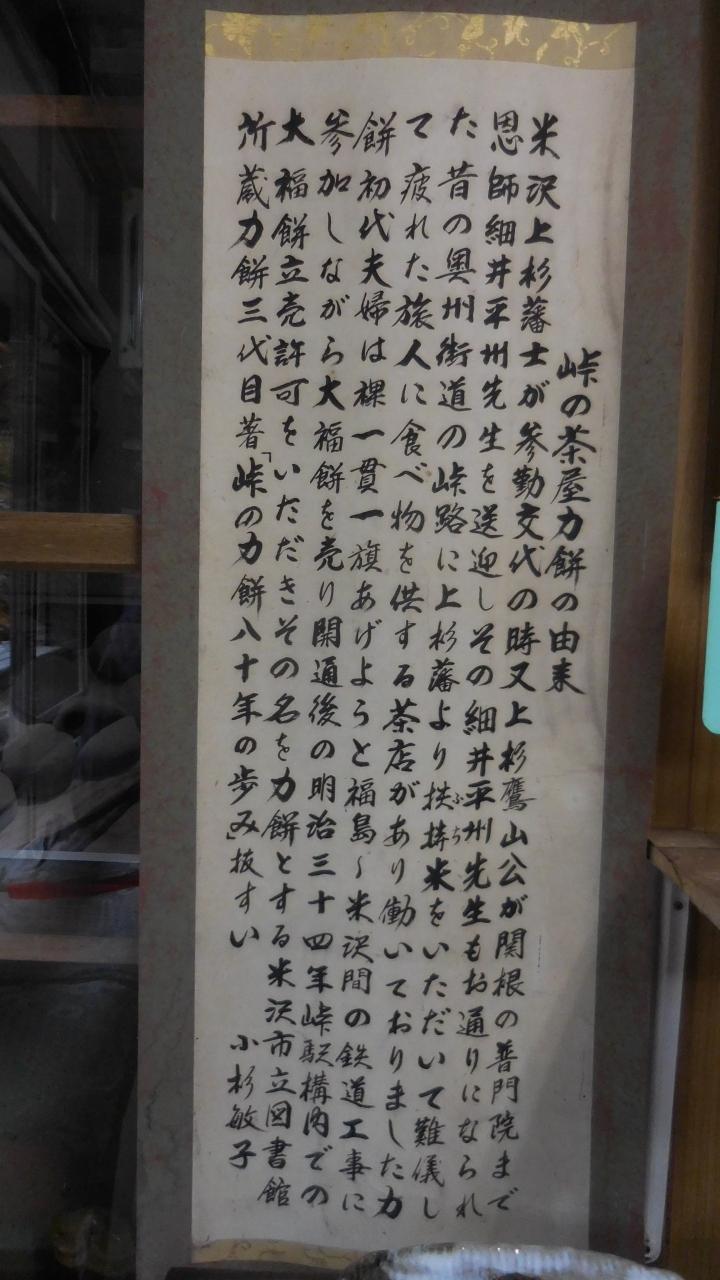 峠の茶屋力餅の由来
米沢上杉藩士が参勤交代の時又上杉鷹山公が関根の普門院まで
恩師細井平州先生を送迎しその細井平州先生もお通りになられ
た昔の奥州街道の峠路に上杉藩より扶持米をいただいて難儀し
て疲れた旅人に食べ物を供する茶店があり働いておりました力
餅初代夫婦は裸一貫一旗あげようと福島〜米沢間の鉄道工事に
参加しながら大福餅を売り開通後の明治三十四年峠駅構内での
大福餅立売許可をいただきその名を力餅とする米沢市立図書館
所蔵力餅三代目著「峠の力餅八十年の歩み」抜すい 小杉敏子